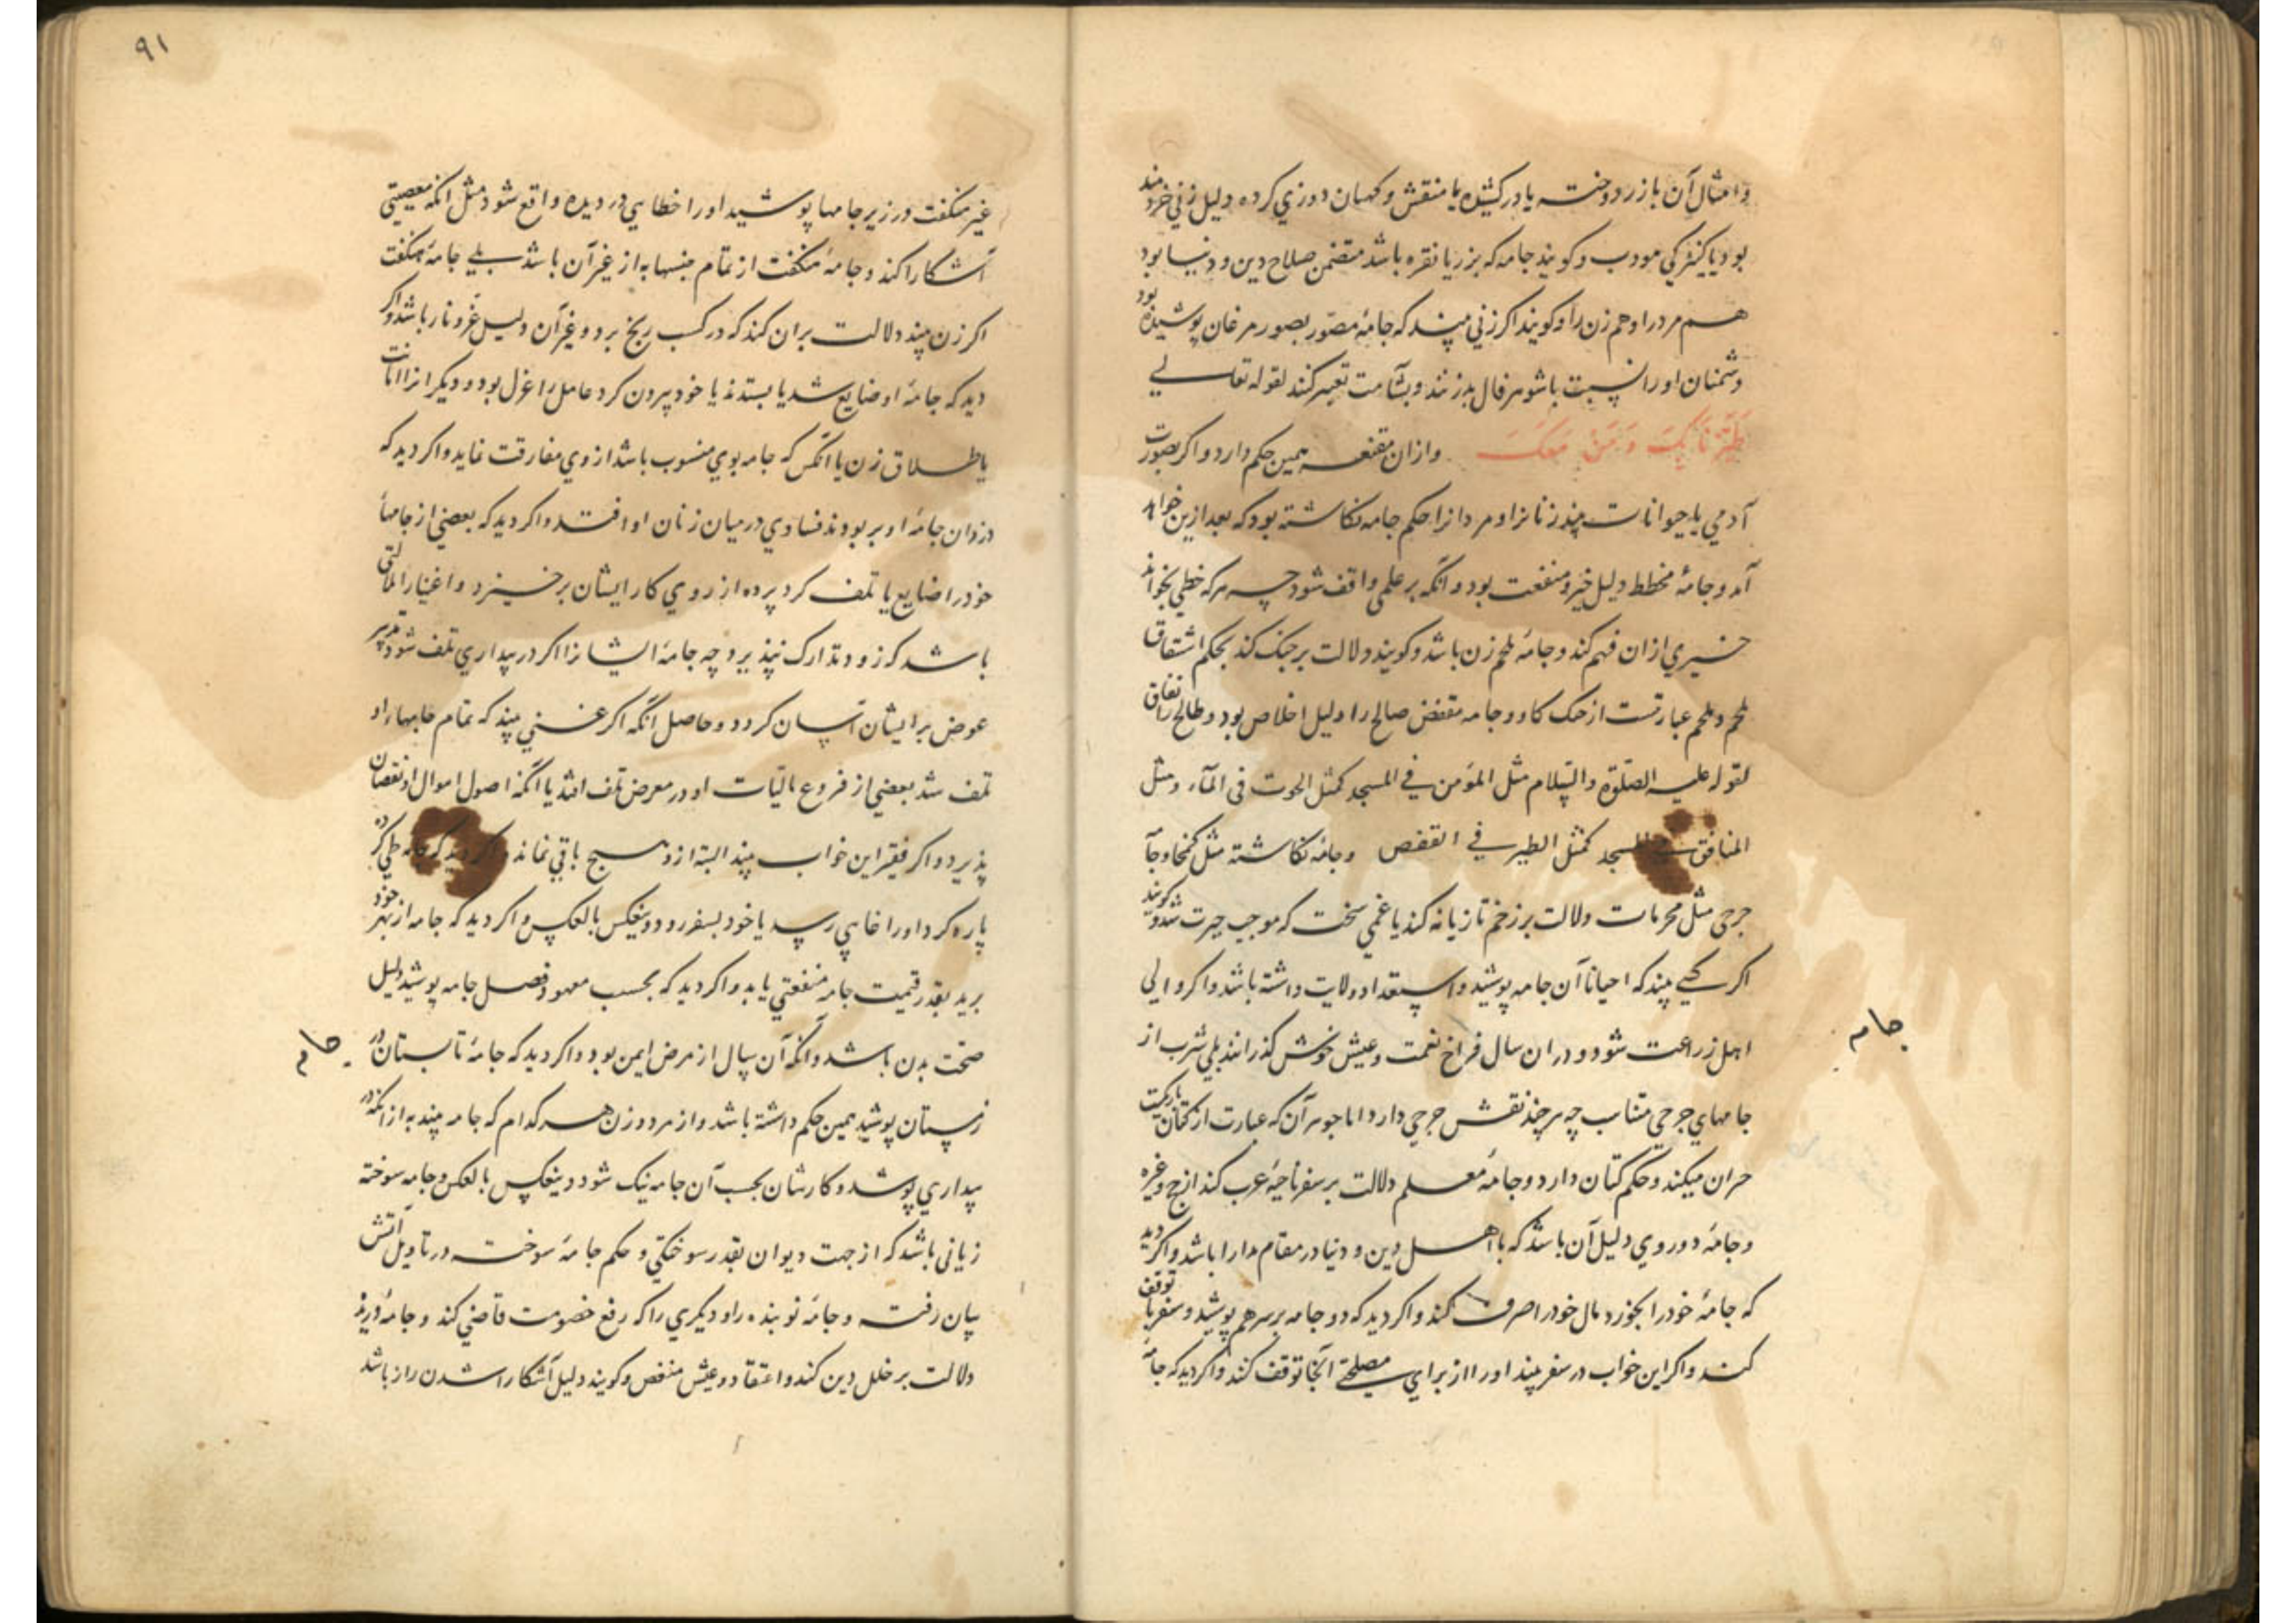 وامثال آن بازر دوخته یا در کشیده یا منقش و کهان دوزي کرده دلیل زني خردمند
بود یا کنیزکي مودب و کویند جامه که بزر یا نقره باشد متضمن صلاح دین و دنیا بود
هم مرد را و هم زن را و کویند اکر زني بیند که جامهٔ مصور بصور مرغان پوشیده بود
دشمنان او را نسبت باشوهر فال بد زنند و بشآمت تعبیر کنند لقوله تعالي
وازان مقنعه همین حکم دارد و اکر بصورت
آدمي یا حیوانات بیند زنانرا و مردانرا حکم جامه نکاشته بود که بعد ازین خواهد
آمد و جامهٔ مخطط دلیل خیر و منفعت بود و آنکه بر علمي واقف شود چه هرکه خطي بخواند
خیري ازان فهم کند و جامهٔ ملحم زن باشد و کویند دلالت بر جنک کند بحکم اشتقاق
ملحم و ملحم عبارتست از جنک کاه و جامه مقفص صالح را دلیل اخلاص بود و طالح را نفاق
لقوله علیه الصلوة والسلام مثل المؤمن في المسجد کمثل الحوت في المآء ومثل
المنافق في المسجد کمثل الطیر في القفص وجامه نکاشته مثل کمخا وجامهٔ
چرخي مثل محرمات دلالت بر زخم تازیانه کند یا غمي سخت که موجب حیرت شود و کویند
اکر کسي بیند که احیانا آن جامه پوشید و استعداد ولایت داشته باشد و اکر والي
اهل زراعت شود و دران سال فراخ نعمت و عیش خوش کذرانند بلي شرب از
جامهاي چرخي متناسب چه هرچند نقش چرخي دارد اما جوهر آن که عبارت از کتان باریکست
حران میکند و حکم کتان دارد و جامهٔ معلم دلالت بر سفر ناحیهٔ عرب کند از حج و غیره
و جامهٔ دوروي دلیل آن باشد که با اهل دین و دنیا در مقام مدارا باشد و اکر دید
که جامهٔ خود را بخورد مال خود را صرف کند و اکر دید که دو جامه بر سر هم پوشید و سفر با توقف
کند و اکر این خواب در سفر بیند او را از براي مصلحتي آنجا توقف کند و اکر دید که جامهٔ
جامه
۹۱
غیر منکفت در زیر جامها پوشید او را خطایي در دیده واقع شود مثل آنکه معصیتي
آشکارا کند و جامهٔ منکفت از تمام جنسها به از غیر آن باشد بلي جامهٔ منکفت
اکر زن بیند دلالت بران کند که در کسب رنج برد و غیر آن دلیل عز و ناز باشد و اکر
دید که جامهٔ او ضایع شد یا بستدند یا خود بیرون کرد عامل را عزل بود و دیکرانرا اهانت
یا طلاق زن یا آنکس که جامه بوي منسوب باشد از وي مفارقت نماید و اکر دید که
دزدان جامهٔ او بربودند فسادي در میان زنان او افتد و اکر دید که بعضي از جامهاء
خود را ضایع یا تلف کرد پرده از روي کار ایشان برخیزد و اغنیا را مالي
باشد که زود تدارک نپذیرد چه جامهٔ ایشانرا اکر در بیداري تلف شود تدبیر
عوض بر ایشان آسان کردد و حاصل آنکه اکر غني بیند که تمام جامهاء او
تلف شد بعضي از فروع مالیات او در معرض تلف افتد یا آنکه اصول اموال او نقصان
پذیرد و اکر فقیر این خواب بیند البته ازو هیچ باقي نماند و اکر دید که جامه طي کرد
پاره کرد او را غایبي رسد یا خود بسفر رود و بعکس بالعکس و اکر دید که جامه از بهر خود
برید بقدر قیمت جامه منفعتي یابد و اکر دید که بحسب معهود فصل جامه پوشید دلیل
صحت بدن باشد و آنکه آن سال از مرض ایمن بود و اکر دید که جامهٔ تابستان در
زمستان پوشید همین حکم داشته باشد و از مرد و زن هر کدام که جامه بیند به از آنکه در
بیداري پوشد و کارشان بحسب آن جامه نیک شود و بعکس بالعکس و جامه سوخته
زیاني باشد که از جهت دیوان بقدر سوختکي و حکم جامهٔ سوخته در تاویل آتش
بیان رفت و جامهٔ نو بنده را و دیکري را که رفع خصومت قاضي کند و جامهٔ دریده
دلالت بر خلل دین کند و اعتقاد و عیش منغص و کویند دلیل آشکارا شدن راز باشد
جامه